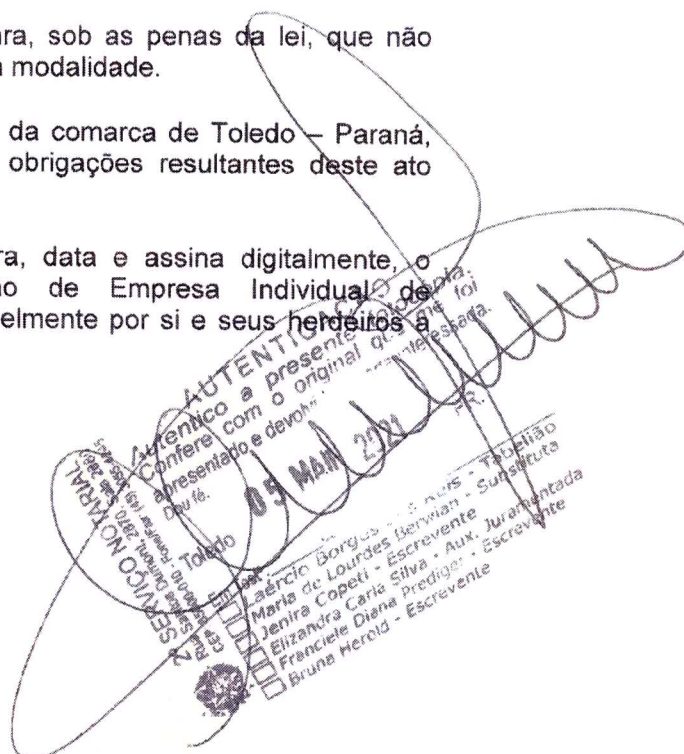 ra, sob as penas da lei, que não
modalidade.
da comarca de Toledo – Paraná,
obrigações resultantes deste ato
ra, data e assina digitalmente, o
de Empresa Individual de
elmente por si e seus herdeiros a
AUTENTICAÇÃO
Autentico a presente fotocópia.
Confere com o original que me foi
apresentado e devolvi interessada.
Dou fé.
Toledo 05 MAR PR.
2º SERVIÇO NOTARIAL
Rua Santos Dumont, 2870,
Laércio Borges - Tabelião
Maria de Lourdes Berwian - Substituta
Jenira Copeti - Escrevente
Elizandra Carla Silva - Aux. Juramentada
Franciele Diana Prediger - Escrevente
Bruna Herold - Escrevente